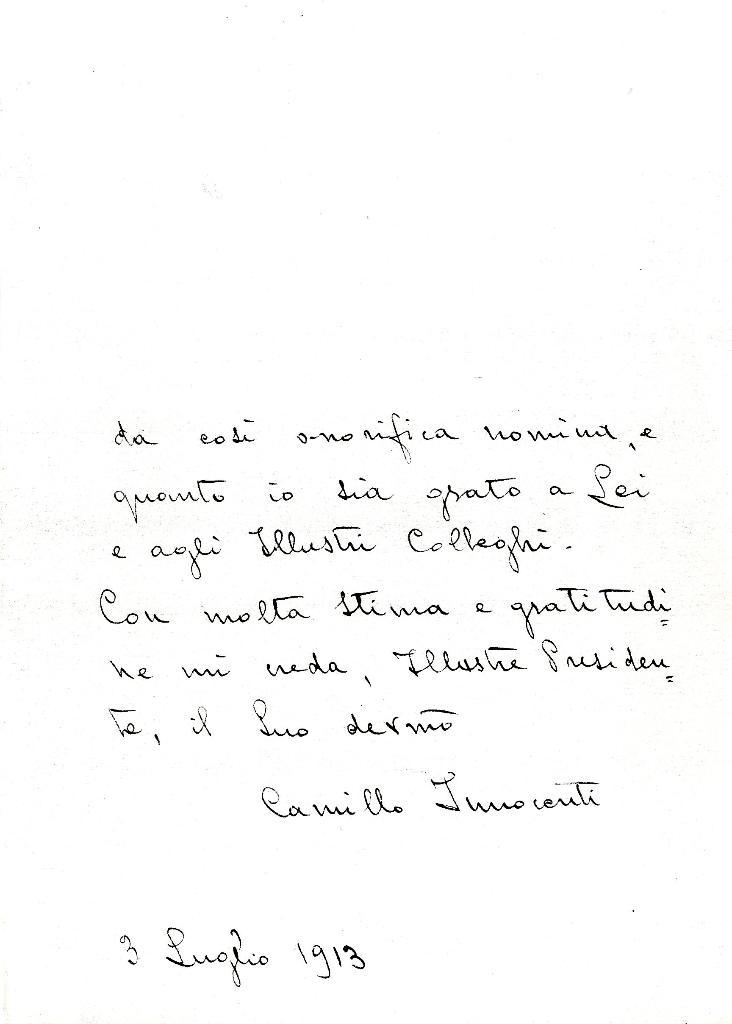 da così onorifica nomina, e
quanto io sia grato a Lei
e agli Illustri Colleghi.
Con molta stima e gratitudi=
ne mi creda, Illustre Presiden=
te, il Suo devmo
Camillo Innocenti
3 Luglio 1913